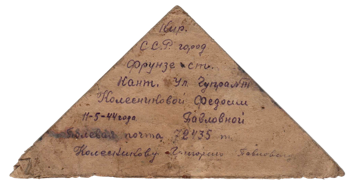 Кир.
С.С.Р. город
Фрунзе ст.
Кант. Ул.
Колесниковой Федосии
11-5-44 года Павловной
Полевая почта 72435
Колесникову Григорию Павлович